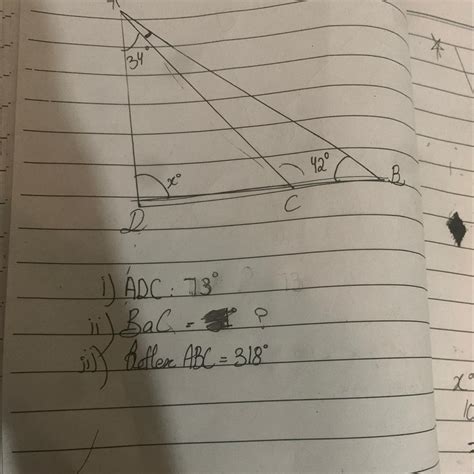 A
34°
x°
42°
B
D
C
i) ADC : 73°
ii) BaC = ?
iii) Reflex ABC = 318°
x°